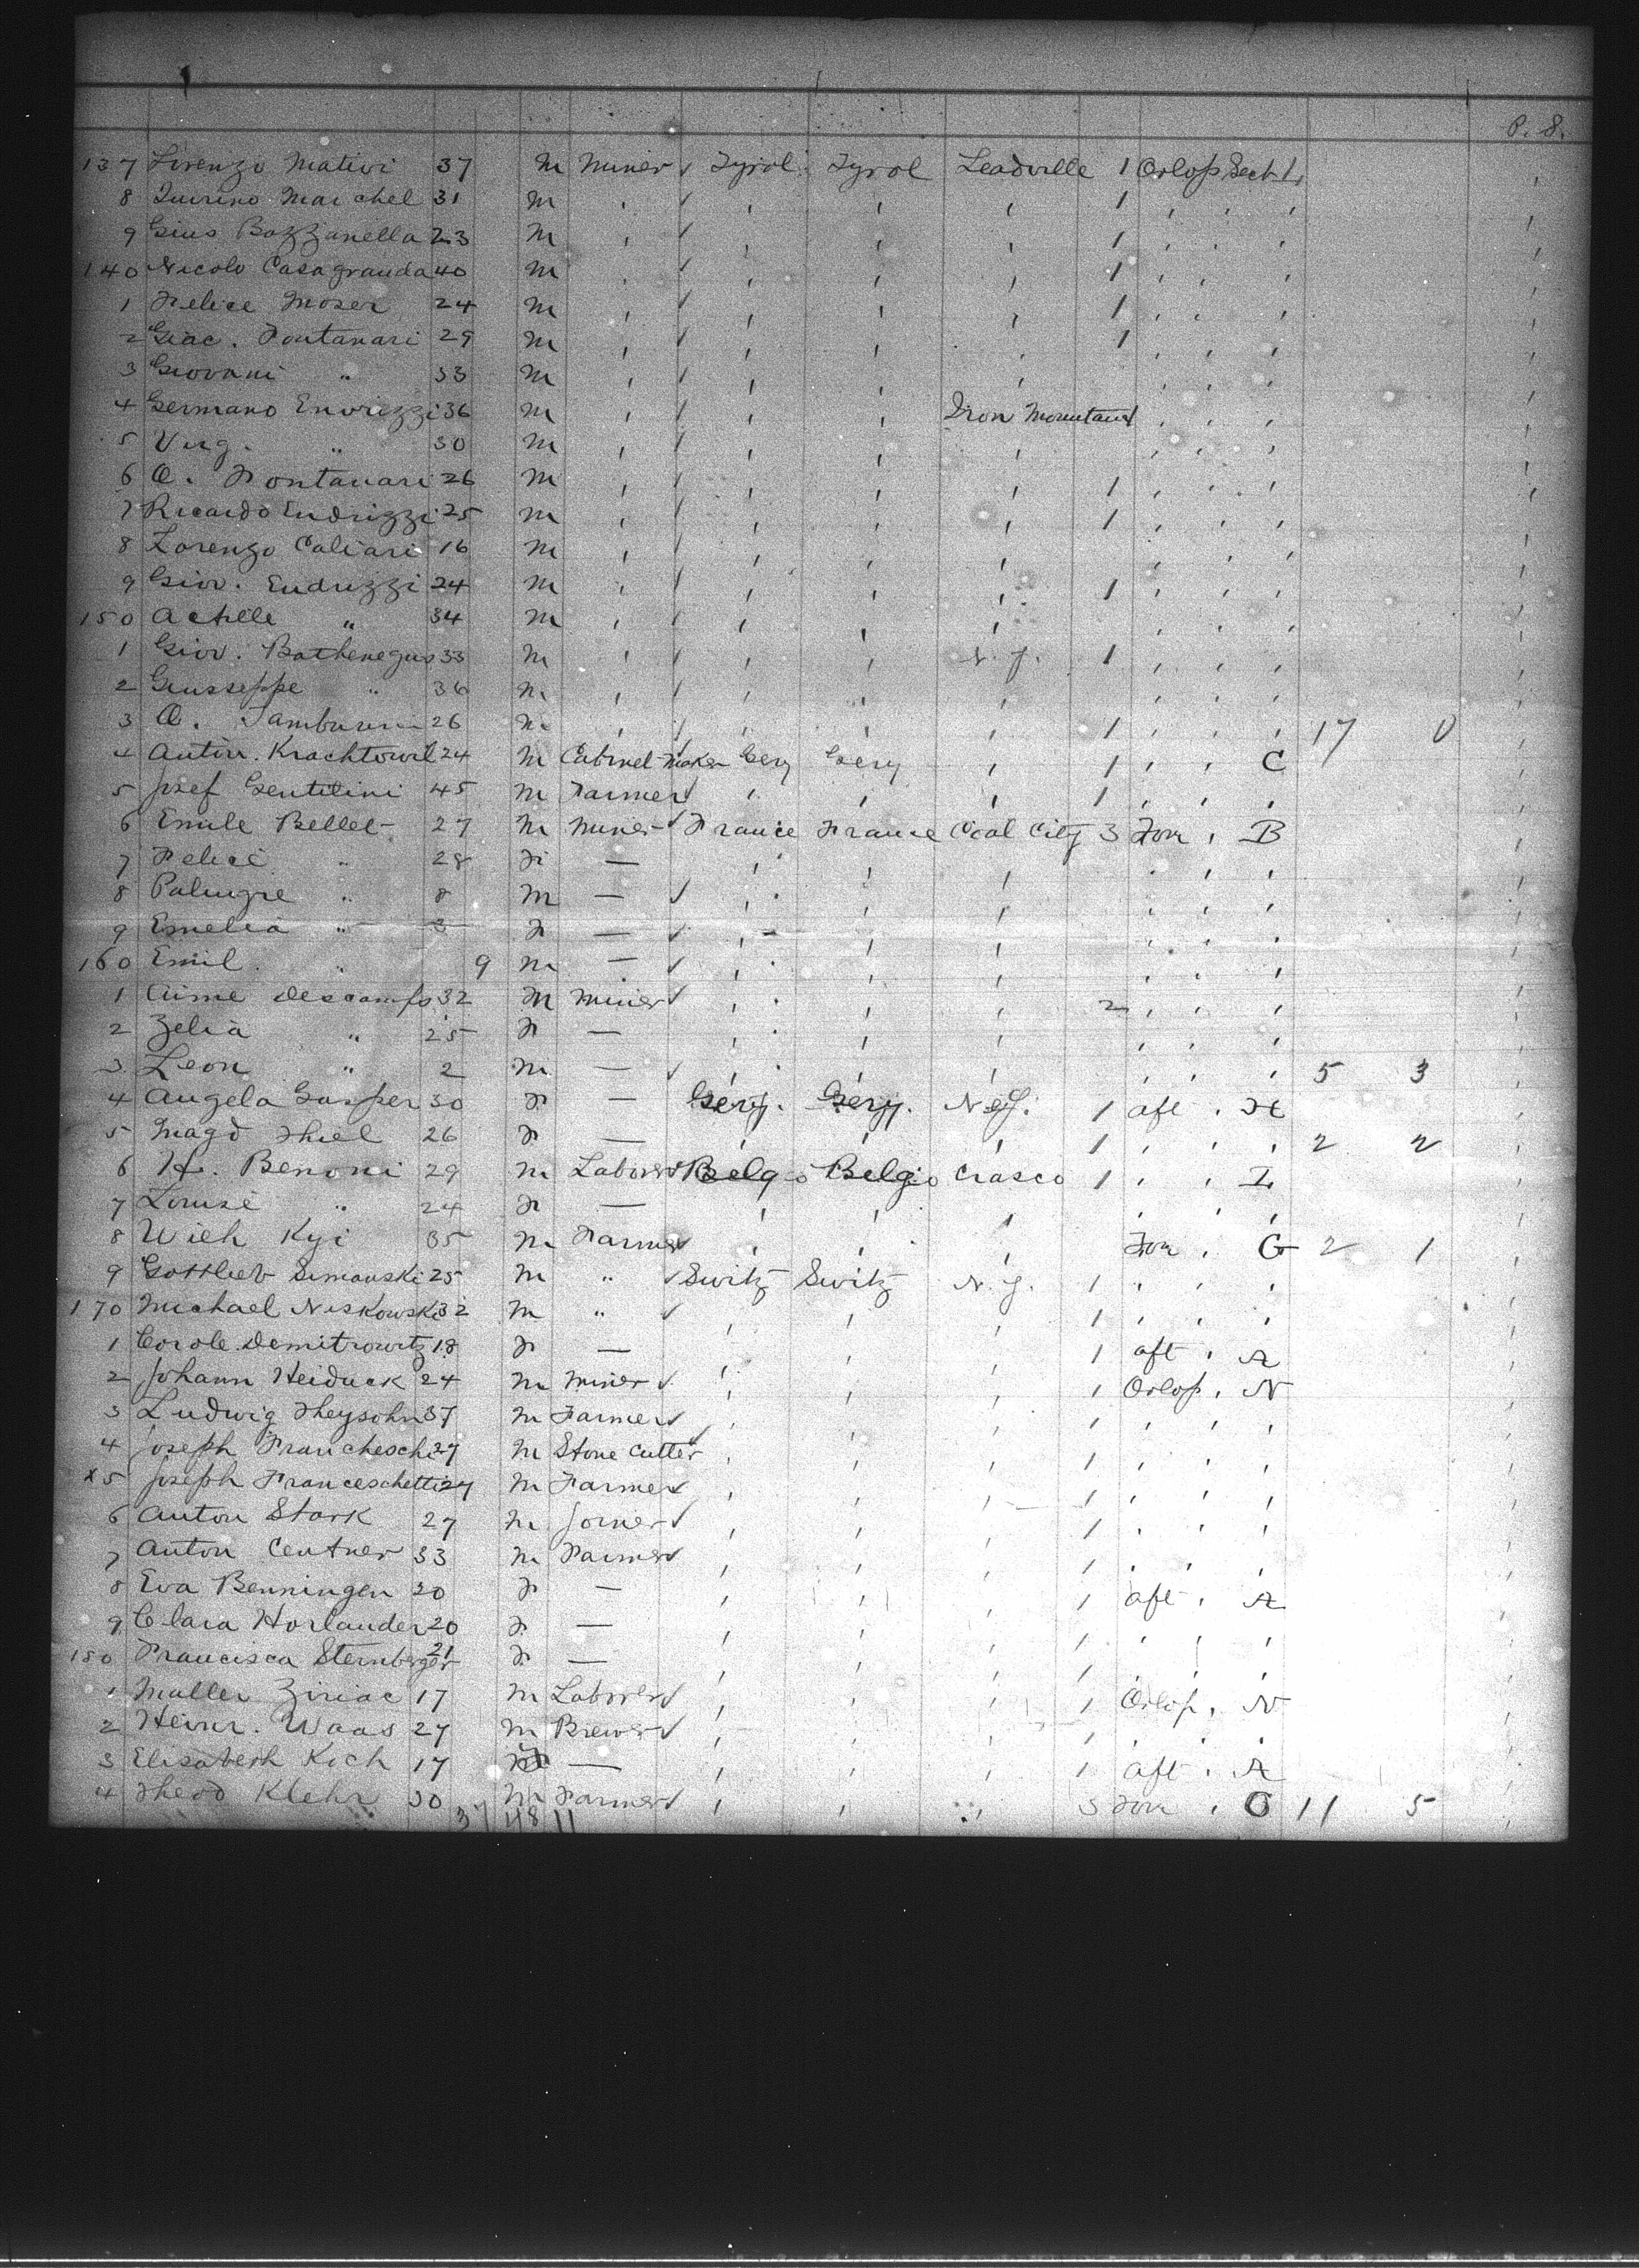 P. 8.
137 Lorenzo Mativi 37 M Miner ✓ Tyrol Tyrol Leadville 1 Orlop Sect L
8 Quirino Marchel 31 M ' ✓ ' ' ' 1 ' ' '
9 Gius Bozzanella 23 M ' ✓ ' ' ' 1 ' ' '
140 Nicolo Casagranda 40 M ' ✓ ' ' ' 1 ' ' '
1 Felice Moser 24 M ' ✓ ' ' ' 1 ' ' '
2 Giac. Fontanari 29 M ' ✓ ' ' ' 1 ' ' '
3 Giovani " 33 M ' ✓ ' ' ' ' ' '
4 Germano Enrizzi 36 M ' ✓ ' ' Iron Mountain 1 ' ' '
5 Virg. " 30 M ' ✓ ' ' ' ' ' '
6 O. Fontanari 26 M ' ✓ ' ' ' 1 ' ' '
7 Ricardo Endrizzi 25 M ' ✓ ' ' ' 1 ' ' '
8 Lorenzo Caliari 16 M ' ✓ ' ' ' ' ' '
9 Giov. Endrizzi 24 M ' ✓ ' ' ' 1 ' ' '
150 Achille " 34 M ' ✓ ' ' ' ' ' '
1 Giov. Bothenegus 33 M ' ✓ ' ' N. Y. 1 ' ' '
2 Giusseppe " 36 M ' ✓ ' ' ' ' ' '
3 O. Tamburini 26 M ' ✓ ' ' ' 1 ' ' ' 17 0
4 Antin. Krachtowil 24 M Cabinet Maker Gery Gery ' 1 ' ' C
5 Josef Gentilini 45 M Farmer ✓ ' ' ' 1 ' ' '
6 Emile Bellet 27 M Miner ✓ France France Coal City 3 For ' B
7 Felici " 28 F — ' ' ' ' ' '
8 Palmyre " 8 M — ✓ ' ' ' ' ' '
9 Emelia " 3 F — ✓ ' ' ' ' ' '
160 Emil " 9 M — ✓ ' ' ' ' ' '
1 Aime Descamps 32 M Miner ✓ ' ' ' 2 ' ' '
2 Zelia " 25 F — ' ' ' ' ' '
3 Leon " 2 M — ✓ ' ' ' ' ' ' 5 3
4 Angela Gasper 30 F — Gery. Gery. N.Y. 1 aft ' H
5 Magd Thiel 26 F — ' ' ' 1 ' ' ' 2 2
6 H. Benoni 29 M Laborer ✓ Belg Belg Crasco 1 ' ' L
7 Louise " 24 F — ' ' ' ' ' '
8 Wilh Kyi 35 M Farmer ✓ ' ' ' For ' G 2 1
9 Gottlieb Simanski 25 M " ✓ Switz Switz N. Y. 1 ' ' '
170 Michael Niskowski 32 M " ✓ ' ' ' 1 ' ' '
1 Corole Demitrowitz 18 F — ' ' ' 1 aft ' A
2 Johann Heiduck 24 M Miner ✓ ' ' ' 1 Orlop ' N
3 Ludwig Theysohn 37 M Farmer ✓ ' ' ' 1 ' ' '
4 Joseph Francheschi 27 M Stone Cutter ✓ ' ' ' 1 ' ' '
x5 Joseph Franceschetti 24 M Farmer ✓ ' ' ' 1 ' ' '
6 Anton Stark 27 M Joiner ✓ ' ' ' 1 ' ' '
7 Anton Centner 33 M Farmer ✓ ' ' ' 1 ' ' '
8 Eva Benningen 20 F — ' ' ' 1 aft ' A
9 Clara Horlander 20 F — ' ' ' 1 ' ' '
180 Francisca Sternberger 21 F — ' ' ' 1 ' ' '
1 Muller Ziriac 17 M Laborer ✓ ' ' ' 1 Orlop ' N
2 Heinr. Waas 27 M Brewer ✓ ' ' ' 1 ' ' '
3 Elisabeth Koch 17 F — ' ' ' 1 aft ' A
4 Theod Klehr 30 M Farmer ✓ ' ' ' 3 For ' G 11 5
37 48 11